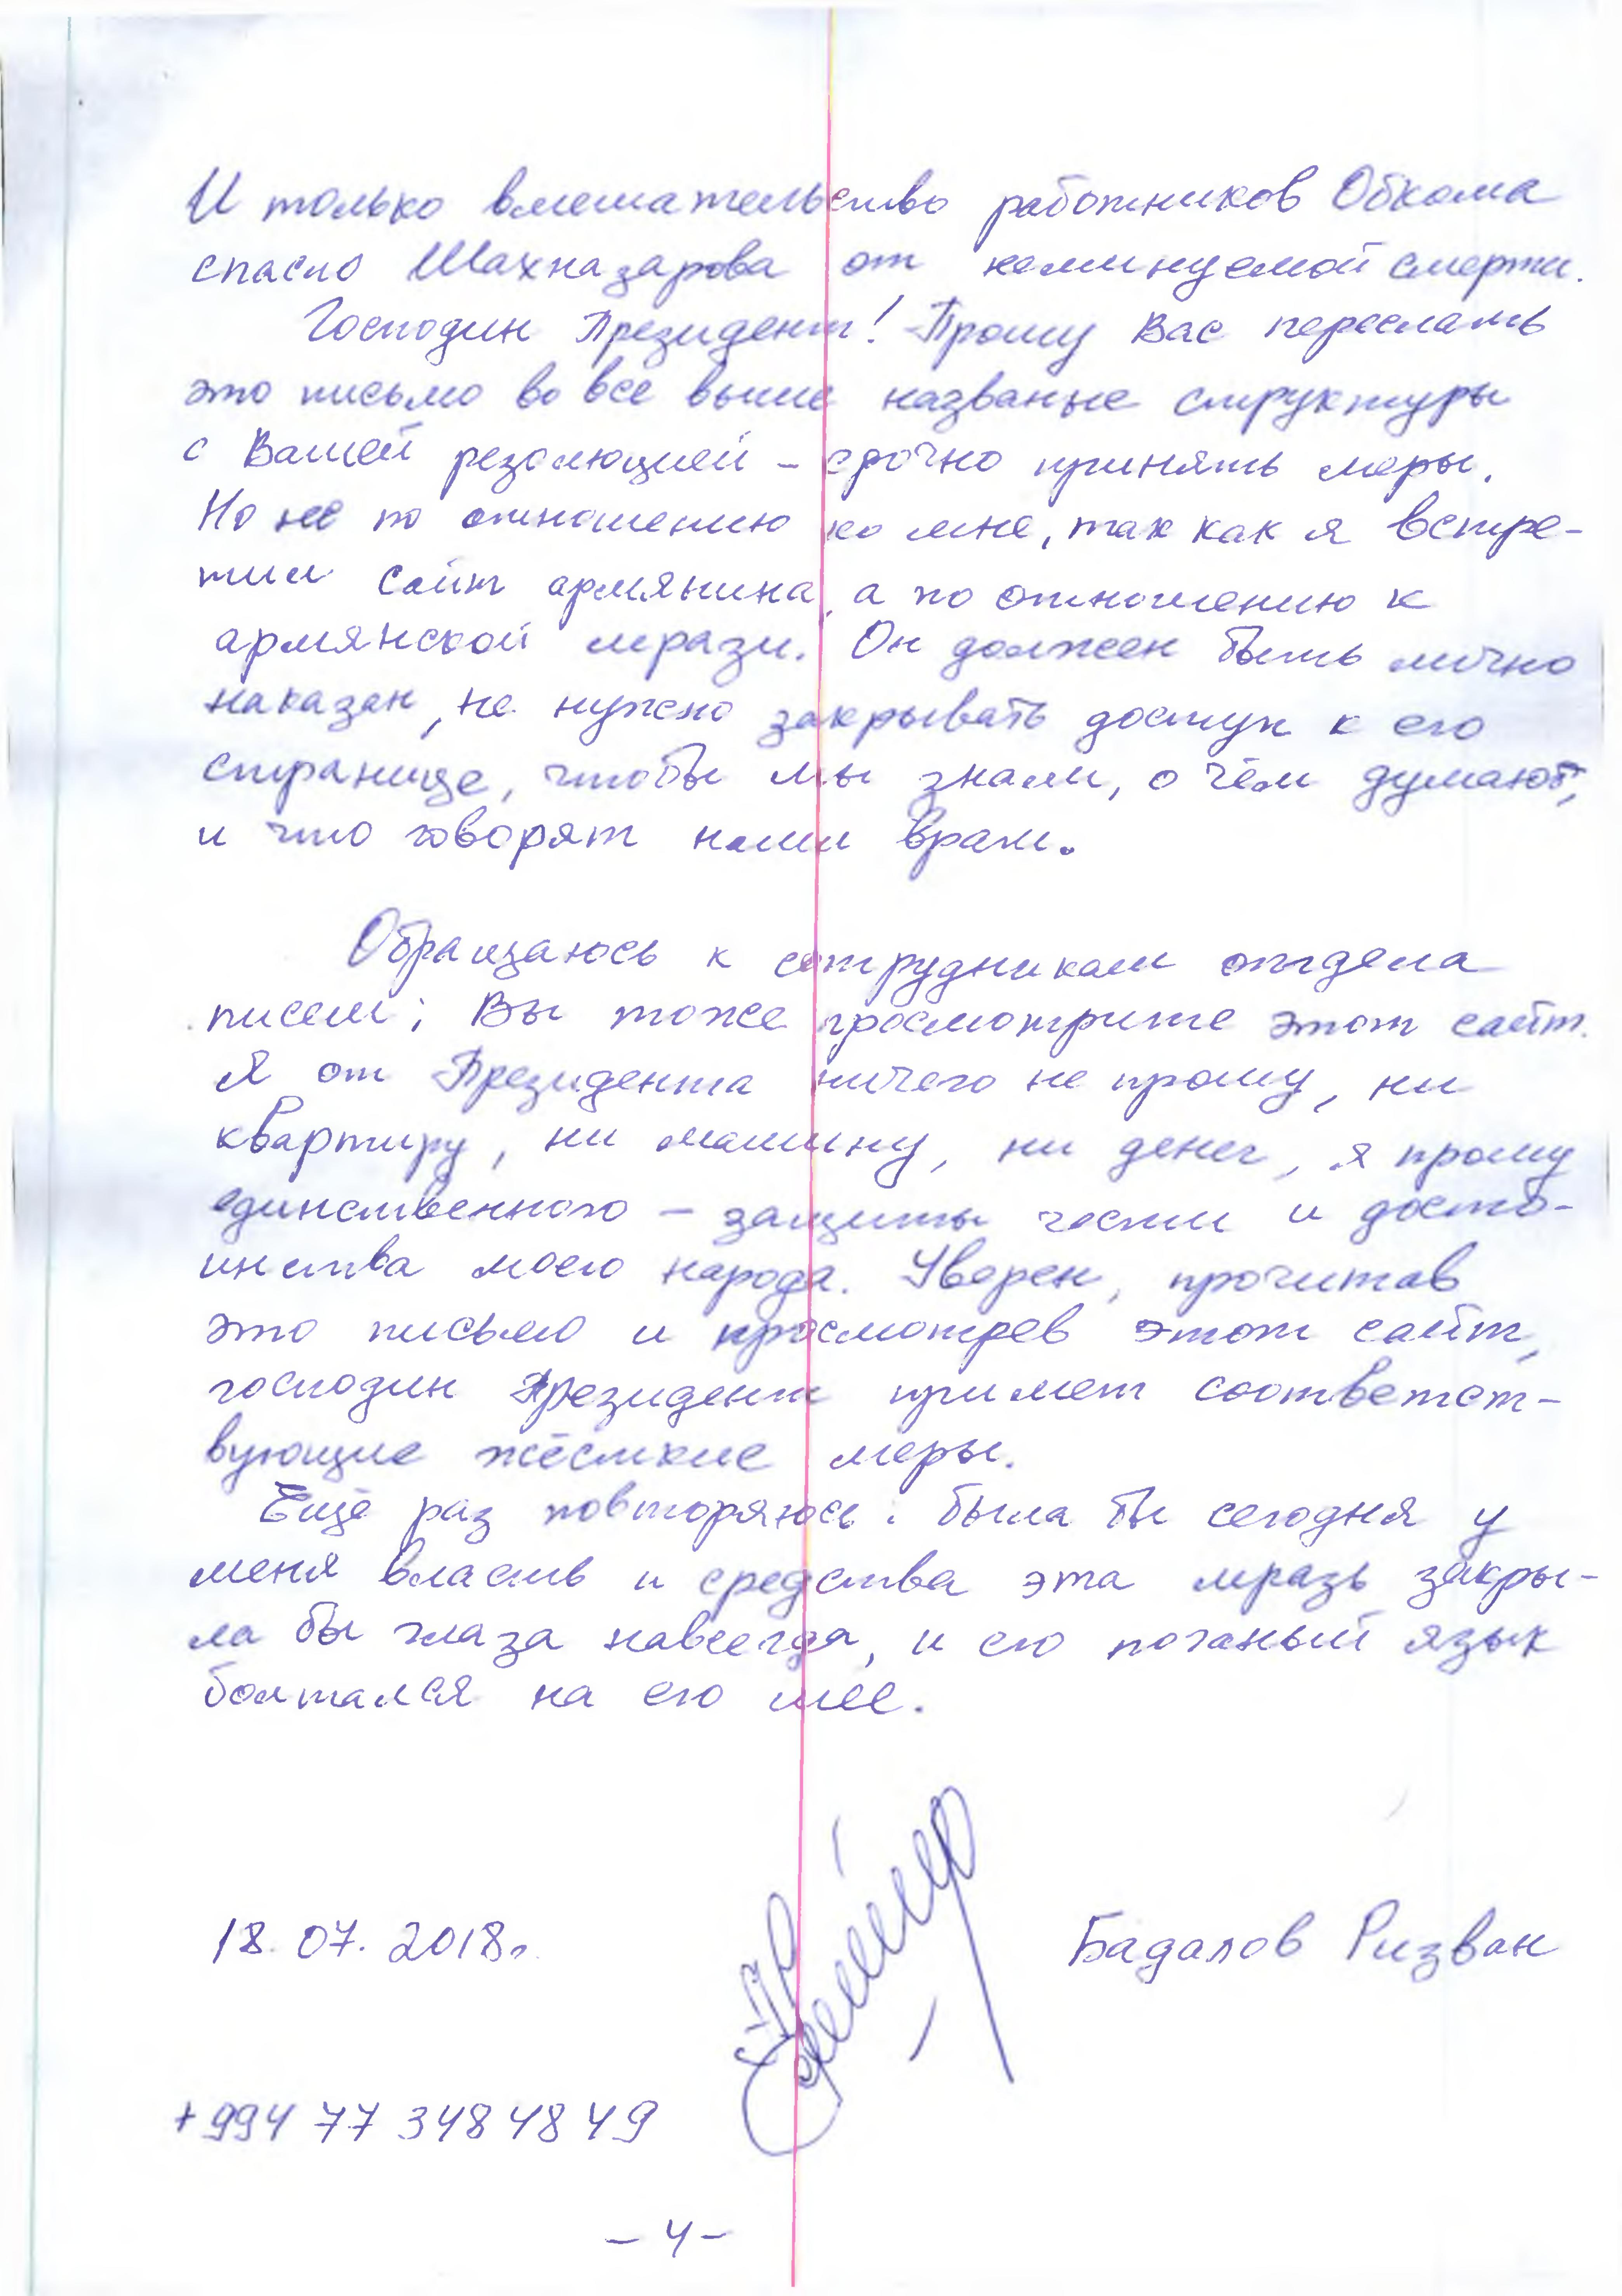 И только вмешательство работников Обкома
спасло Шахназарова от неминуемой смерти.
Господин Президент! Прошу Вас переслать
это письмо во все выше названые структуры
с Вашей резолюцией – срочно принять меры.
Но не по отношению ко мне, так как я встре-
тил сайт армянина, а по отношению к
армянской мрази. Он должен быть лично
наказан, не нужно закрывать доступ к его
странице, чтобы мы знали, о чём думают,
и что говорят наши враги.
Обращаюсь к сотрудникам отдела
писем; Вы тоже просмотрите этот сайт.
Я от Президента ничего не прошу, ни
квартиру, ни машину, ни денег, я прошу
единственного – защиты чести и досто-
инства моего народа. Уверен, прочитав
это письмо и просмотрев этот сайт,
господин Президент примет соответст-
вующие жёсткие меры.
Ещё раз повторяюсь: была бы сегодня у
меня власть и средства эта мразь закры-
ла бы глаза навсегда, и его поганый язык
болтался на его шее.
18.07.2018г.
Бадалов Ризван
+994 77 348 48 49
– 4 –